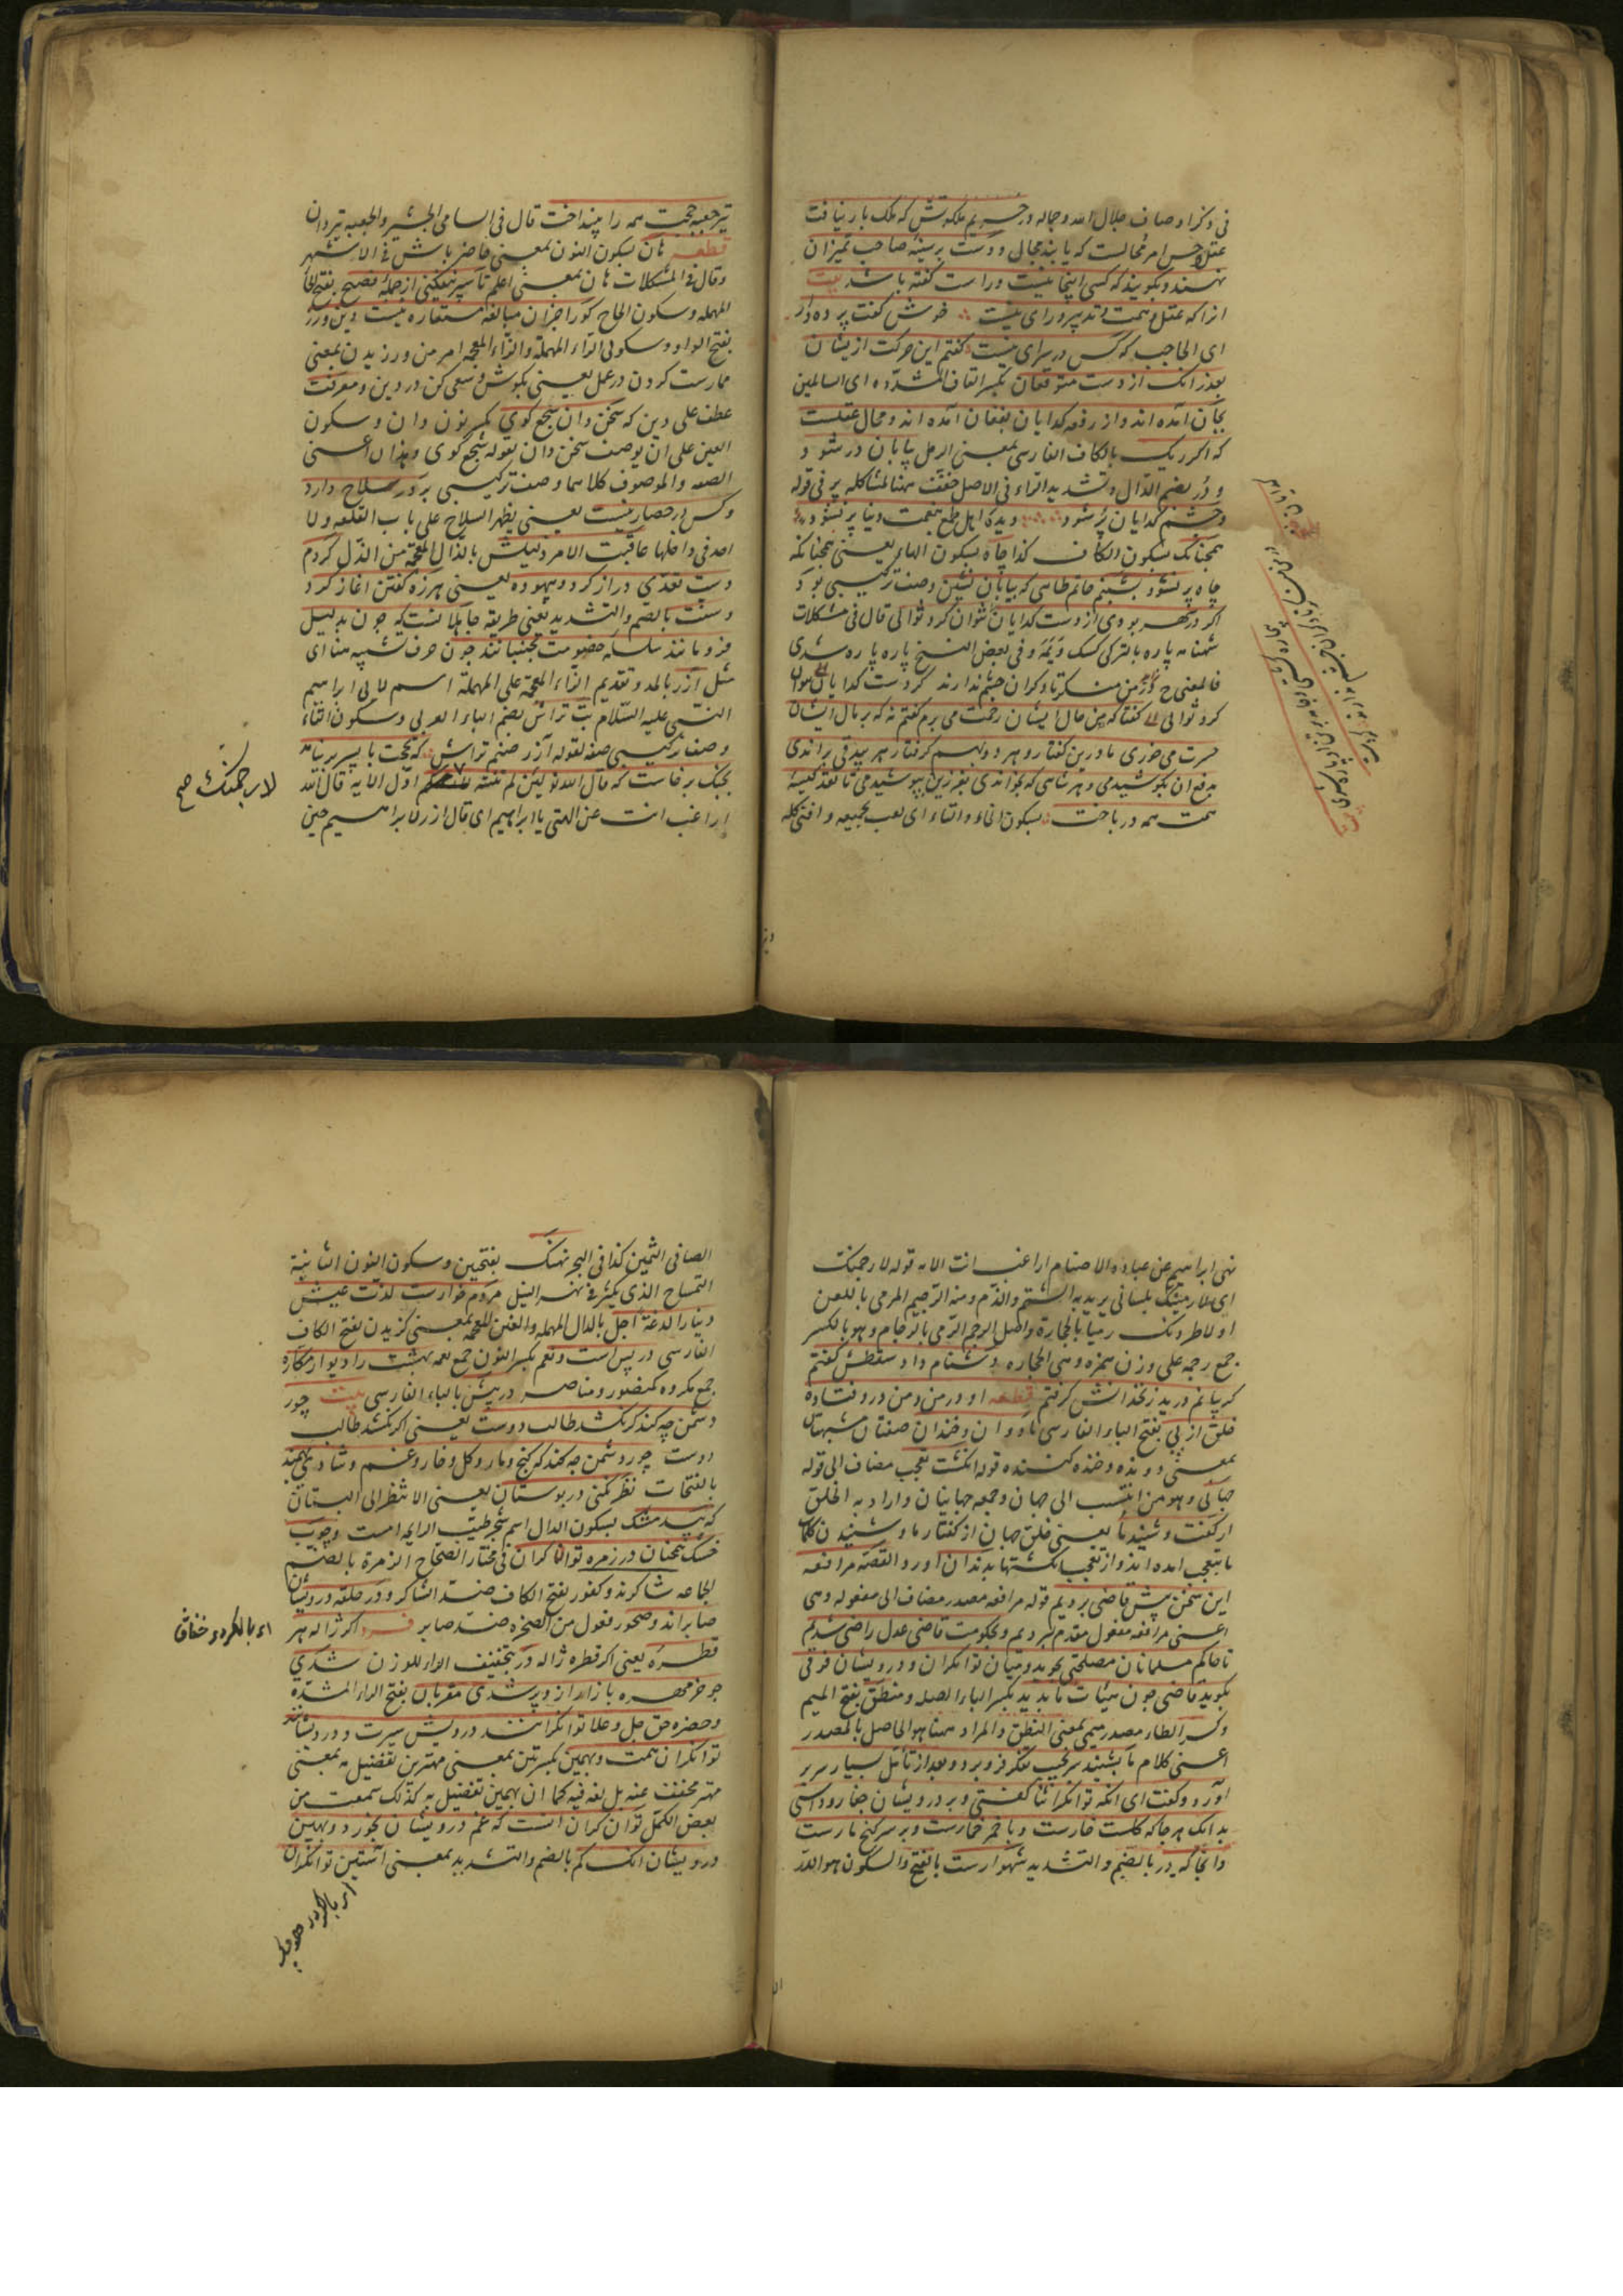 فی ذکر اوصاف جلال الله وجماله در حریم ملکوتش که ملک بار نیافت
عقل وحس امر محالست که یابند مجال ودست بر سینه صاحب تمیزان
نهند وبکویند که کسی اینجا نیست وراست کفته باشد بیت
انرا که عقل وهمت وتدبیر ورای نیست خوش کفت پرده دار
ای الحاجب که کس در سرای نیست کفتم این حرکت از یشان
بعذر انک از دست متوقعان بکسر القاف المشدده ای السائلین
بجان آمده اند واز رقعه کدایان بفغان آمده اند ومحال عقلست
که اکر ریک بالکاف الفارسی بمعنی الرمل بیابان در شود
و در بضم الدال وتشدید الراء فی الاصل خفف هنا لمشاکله پر فی قوله
وچشم کدایان پر شود دیده اهل طمع بنعمت دنیا پر نشود
همچنانک بسکون الکاف کذا چاه بسکون الهاء یعنی همچنانکه
چاه پر نشود بشبنم حاتم طایی که بیابان نشین وصف ترکیبی بود
اکر در شهر بودی از دست کدایان نتوان کرد ثوابی قال فی مشکلات
شهنامه پاره بالترکی کسک ویمه وفی بعض النسخ پاره پاره شدی
فالمعنی ح در من منکر تا دکران چشم ندارند کز دست کدایان نتوان
کرد ثوابی کفتا که من حال ایشان رحمت می برم کفتم نه که بر مال ایشان
حسرت می خوری ما درین کفتار وهر دو بهم کرفتار هر بیدقی براندی
بدفع ان بکوشیدمی وهر شاهی که بخواندی بفرزین بپوشیدمی تا نقد کیسه
همت همه در باخت بسکون الخاء والتاء ای لعب بجمیعه وافنی کله
تیر جعبه حجت همه را بینداخت قال فی السامی الجشیر والجعبه تیردان
قطعه هان بسکون النون بمعنی حاضر باش فی الاشهر
وقال فی المشکلات هان بمعنی اعلم تا سپر نیفکنی از حمله فصیح بفتح الحاء
المهمله وسکون المیم کورا جز ان مبالغه مستعار نیست دین ورز
بفتح الواو وسکون الراء المهملة والزاء المعجمه امر من ورزیدن بمعنی
ممارست کردن در عمل یعنی بکوش وسعی کن در دین ومعرفت
عطف علی دین که سخن دان سجع کوی بکسر نون دان وسکون
العین علی ان یوصف سخن دان بقوله سجع کوی وهذان اعنی
الصفه والموصوف کلاهما وصف ترکیبی بر در سلاح دارد
وکس در حصار نیست یعنی یظهر السلاح علی باب القلعه ولا
احد فی داخلها عاقبت الامر ذلیلش بالذال المعجمة من الذل کردم
دست تعدی دراز کرد وبیهوده یعنی هرزه کفتن اغاز کرد
وسنت بالضم والتشدید یعنی طریقه جاهلانست که چون بدلیل
فرو مانند سلسله خصومت بجنبانند چون حرف تشبیه هنا ای
مثل آزر بالمد وتقدیم الزاء المعجمة علی المهملة اسم لابی ابراهیم
النبی علیه السلام بت تراش بضم الباء العربی وسکون التاء
وصف ترکیبی صفه لقوله آزر صنم تراش که بحجت با پسر بر نیامد
بجنک برخاست که قال الله تع لئن لم تنته اول الایه قال الله
اراغب انت عن الهتی یا ابراهیم ای قال ازر لابراهیم حین
لارجمنک صح
نهی ابراهیم عن عباده الاصنام اراغب انت الایه قوله لارجمنک
ای لارمینک بلسانی یرید به الشتم والذم ومنه الرجیم المرمی باللعن
او لاطردنک رمیا بالحجارة واصل الرجم الرمی بالرجام وهو بالکسر
جمع رجمه علی وزن همزه وهی الحجاره دشنام داد سقطش کفتم
کریبانم درید زنخدانش کرفتم قطعه او در من ومن در وفتاده
خلق از پی بفتح الباء الفارسی ما دوان وخندان صفتان مشبهتان
بمعنی دونده وخنده کننده قوله انکشت تعجب مضاف الی قوله
جهانی وهو من انتسب الی جهان وجمعه جهانیان واراد به الخلق
از کفت وشنید ما یعنی خلق جهان از کفتار ما وشنیدن کلام
ما بتعجب امده اند واز تعجب انکشتها بدندان اورد القصه مرافعه
این سخن پیش قاضی بردیم قوله مرافعه مصدر مضاف الی مفعوله وهی
اعنی مرافعه مفعول مقدم لبردیم وبحکومت قاضی عدل راضی شدیم
تا حاکم مسلمانان مصلحتی بجوید ومیان توانکران ودرویشان فرقی
بکوید قاضی چون هیئات ما بدید بکسر الباء الصله ومنطق بفتح المیم
وکسر الطاء مصدر میمی بمعنی النطق والمراد هنا هو الحاصل بالمصدر
اعنی کلام ما بشنید سر بجیب تفکر فرو برد وبعد از تامل بسیار سر بر
آورد وکفت ای انکه توانکرانرا ثنا کفتی وبر درویشان جفا روا داشتی
بدانک هر جا که کلست خارست وبا خمر خمارست وبر سر کنج مارست
وانجا که در بالضم والتشدید شهوارست بالفتح والسکون هو الدر
الصافی الثمین کذا فی البحر نهنک بفتحین وسکون النون الثانیة
التمساح الذی یکثر فی نهر النیل مردم خوارست لذت عیش
دنیارا لدغه اجل بالدال المهمله والغین المعجمه بمعنی کزیدن بفتح الکاف
الفارسی در پس است ونعم بکسر النون جمع نعمه بهشت را دیوار مکاره
جمع مکروه کمنصور ومناصر در پیش بالباء الفارسی بیت جور
دشمن چه کند کر نکشد طالب دوست یعنی اکر نکشد طالب
دوست جور دشمن چه کند که کنج ومار وکل وخار وغم وشادی بهمند
بالفتحات نظر نکنی در بوستان یعنی الا تنظر الی البستان
که بید مشک بسکون الدال اسم شجر طیب الرایحه است وچوب
خشک همچنان در زمره توانکران فی مختار الصحاح الزمرة بالضم
الجماعه شاکرند وکفور بفتح الکاف ضد الشاکر ودر حلقه درویشان
صابراند وضجور فعول من الضجره ضد صابر فرد اکر ژاله هر
قطره یعنی اکر قطره ژاله در بتخفیف الراء للوزن شدی
چو خرمهره بازار از و پر شدی مقربان بفتح الراء المشدده
وحضره حق جل وعلا توانکرانند درویش سیرت ودرویشانند
توانکران همت وبهین بکسرتین بمعنی مهترین تفضیل مه بمعنی
مهتر مخفف عنه بل لغه فیه کما ان بهین تفضیل به کذلک سمعت من
بعض الکمل توانکران انست که غم درویشان بخورد وبهین
درویشان انک کم بالضم والتشدید بمعنی آستین توانکران